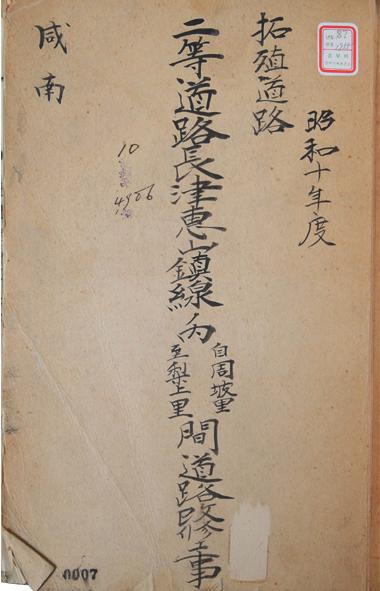 昭和十年度
拓殖道路
二等道路長津惠山鎭線內
自周坡里
至梨上里
間道路修工事
咸南
10
4906
0007